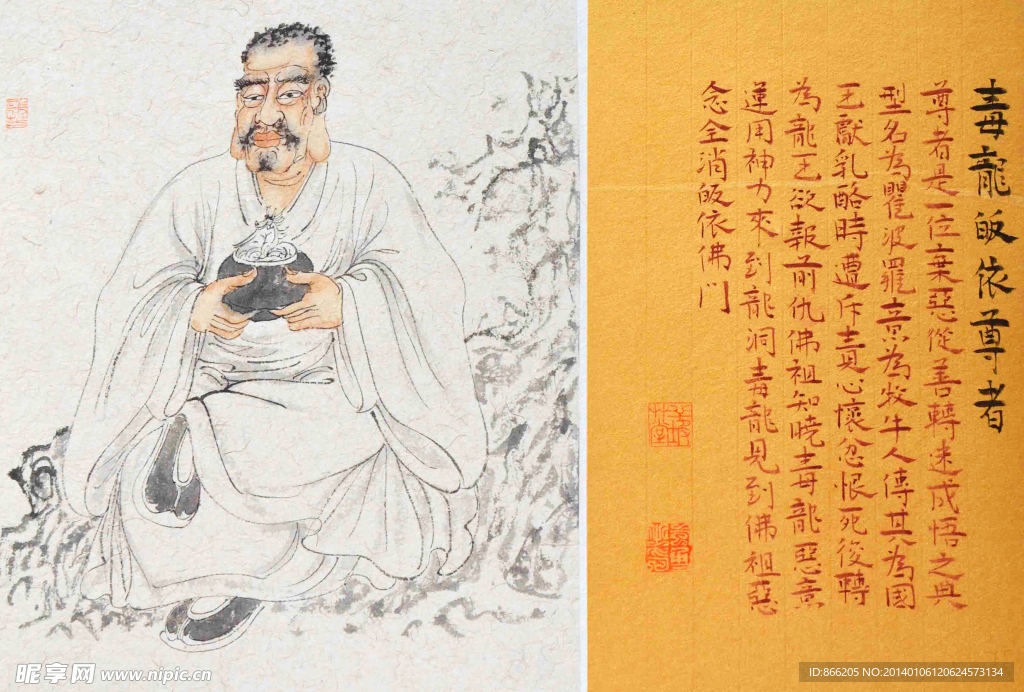 毒龍皈依尊者
尊者是一位棄惡從善轉迷成悟之典
型名為瞿波羅意為牧牛人傳其為國
王獻乳酪時遭斥責心懷忿恨死後轉
為龍王欲報前仇佛祖知曉毒龍惡意
運用神力來到龍洞毒龍見到佛祖惡
念全消皈依佛门
昵享网 www.nipic.cn
ID:866205 NO:20140106120624573134